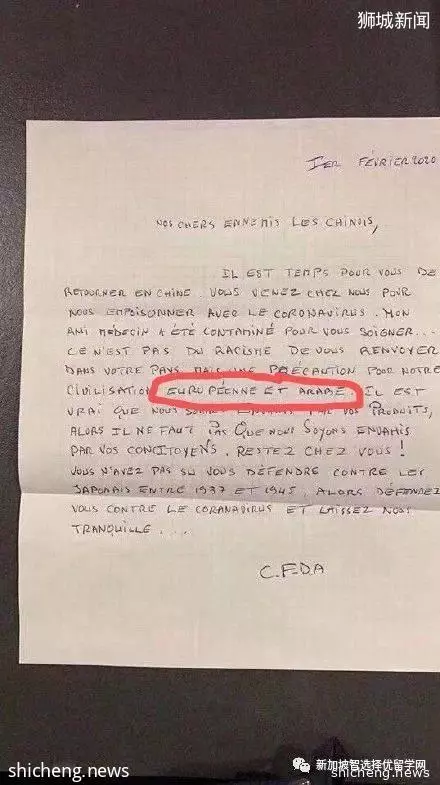 狮城新闻
1ER FÉVRIER 2020
NOS CHERS ENNEMIS LES CHINOIS,
IL EST TEMPS POUR VOUS DE
RETOURNER EN CHINE. VOUS VENEZ CHEZ NOUS POUR
NOUS EMPOISONNER AVEC LE CORONAVIRUS. MON
AMI MÉDECIN A ÉTÉ CONTAMINÉ POUR VOUS SOIGNER...
CE N'EST PAS DU RACISME DE VOUS RENVOYER
DANS VOTRE PAYS MAIS UNE PRÉCAUTION POUR NOTRE
CIVILISATION EUROPÉENNE ET ARABE. IL EST
VRAI QUE NOUS SOMMES ENVAHIS PAR VOS PRODUITS,
ALORS IL NE FAUT PAS QUE NOUS SOYONS ENVAHIS
PAR VOS CONCITOYENS. RESTEZ CHEZ VOUS!
VOUS N'AVEZ PAS SU VOUS DÉFENDRE CONTRE LES
JAPONAIS ENTRE 1937 ET 1945. ALORS DÉFENDEZ
VOUS CONTRE LE CORANAVIRUS ET LAISSEZ NOUS
TRANQUILLE....
C.F.D.A
新加坡智选择优留学网
shicheng.news
shicheng.news